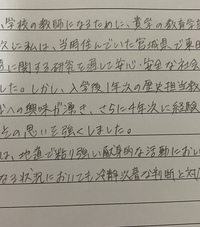 小学校の教師になるために、貴学の教育学
次に私は、当時住んでいた宮城県で東日
に関する研究を通して安心・安全な社会
した。しかし、入学後1年次の歴史担当教
への興味が湧き、さらに4年次に経験
その思いを強くしました。
は、地道で粘り強い献身的な活動におい
なる状況においても冷静沈着な判断と対